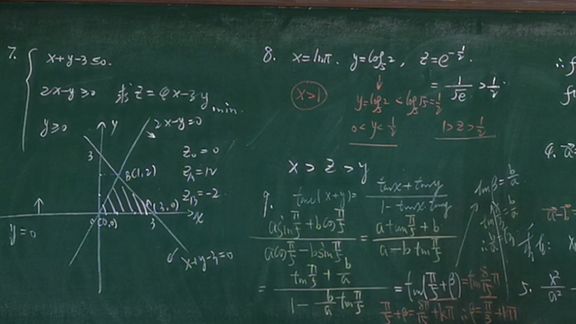 7. { x+y-3≤0.
2x-y≥0 求 Z=4x-3y min.
y≥0
y
2x-y=0
3
B(1,2)
Z₀=0
Z_A=12
Z_B=-2
0(0,0)
A(3,0)
3
x
y=0
x+y-3=0
8. x=lnπ. y=log₅2, z=e^{-1/2}.
x>1
y=log₅2<log₅√5=1/2
= 1/√e > 1/2.
0<y<1/2
1>z>1/2
x>z>y
9. tan(x+y)= (tanx+tany)/(1-tanx tany)
(a sin π/5 + b cos π/5)/(a cos π/5 - b sin π/5) = (a tan π/5 + b)/(a - b tan π/5)
= (tan π/5 + b/a)/(1 - b/a tan π/5) = tan(π/5+β) = tan 8π/15
tanβ = b/a
π/5+β = 8π/15+kπ ∴β=π/3+kπ
5. x²/a² -